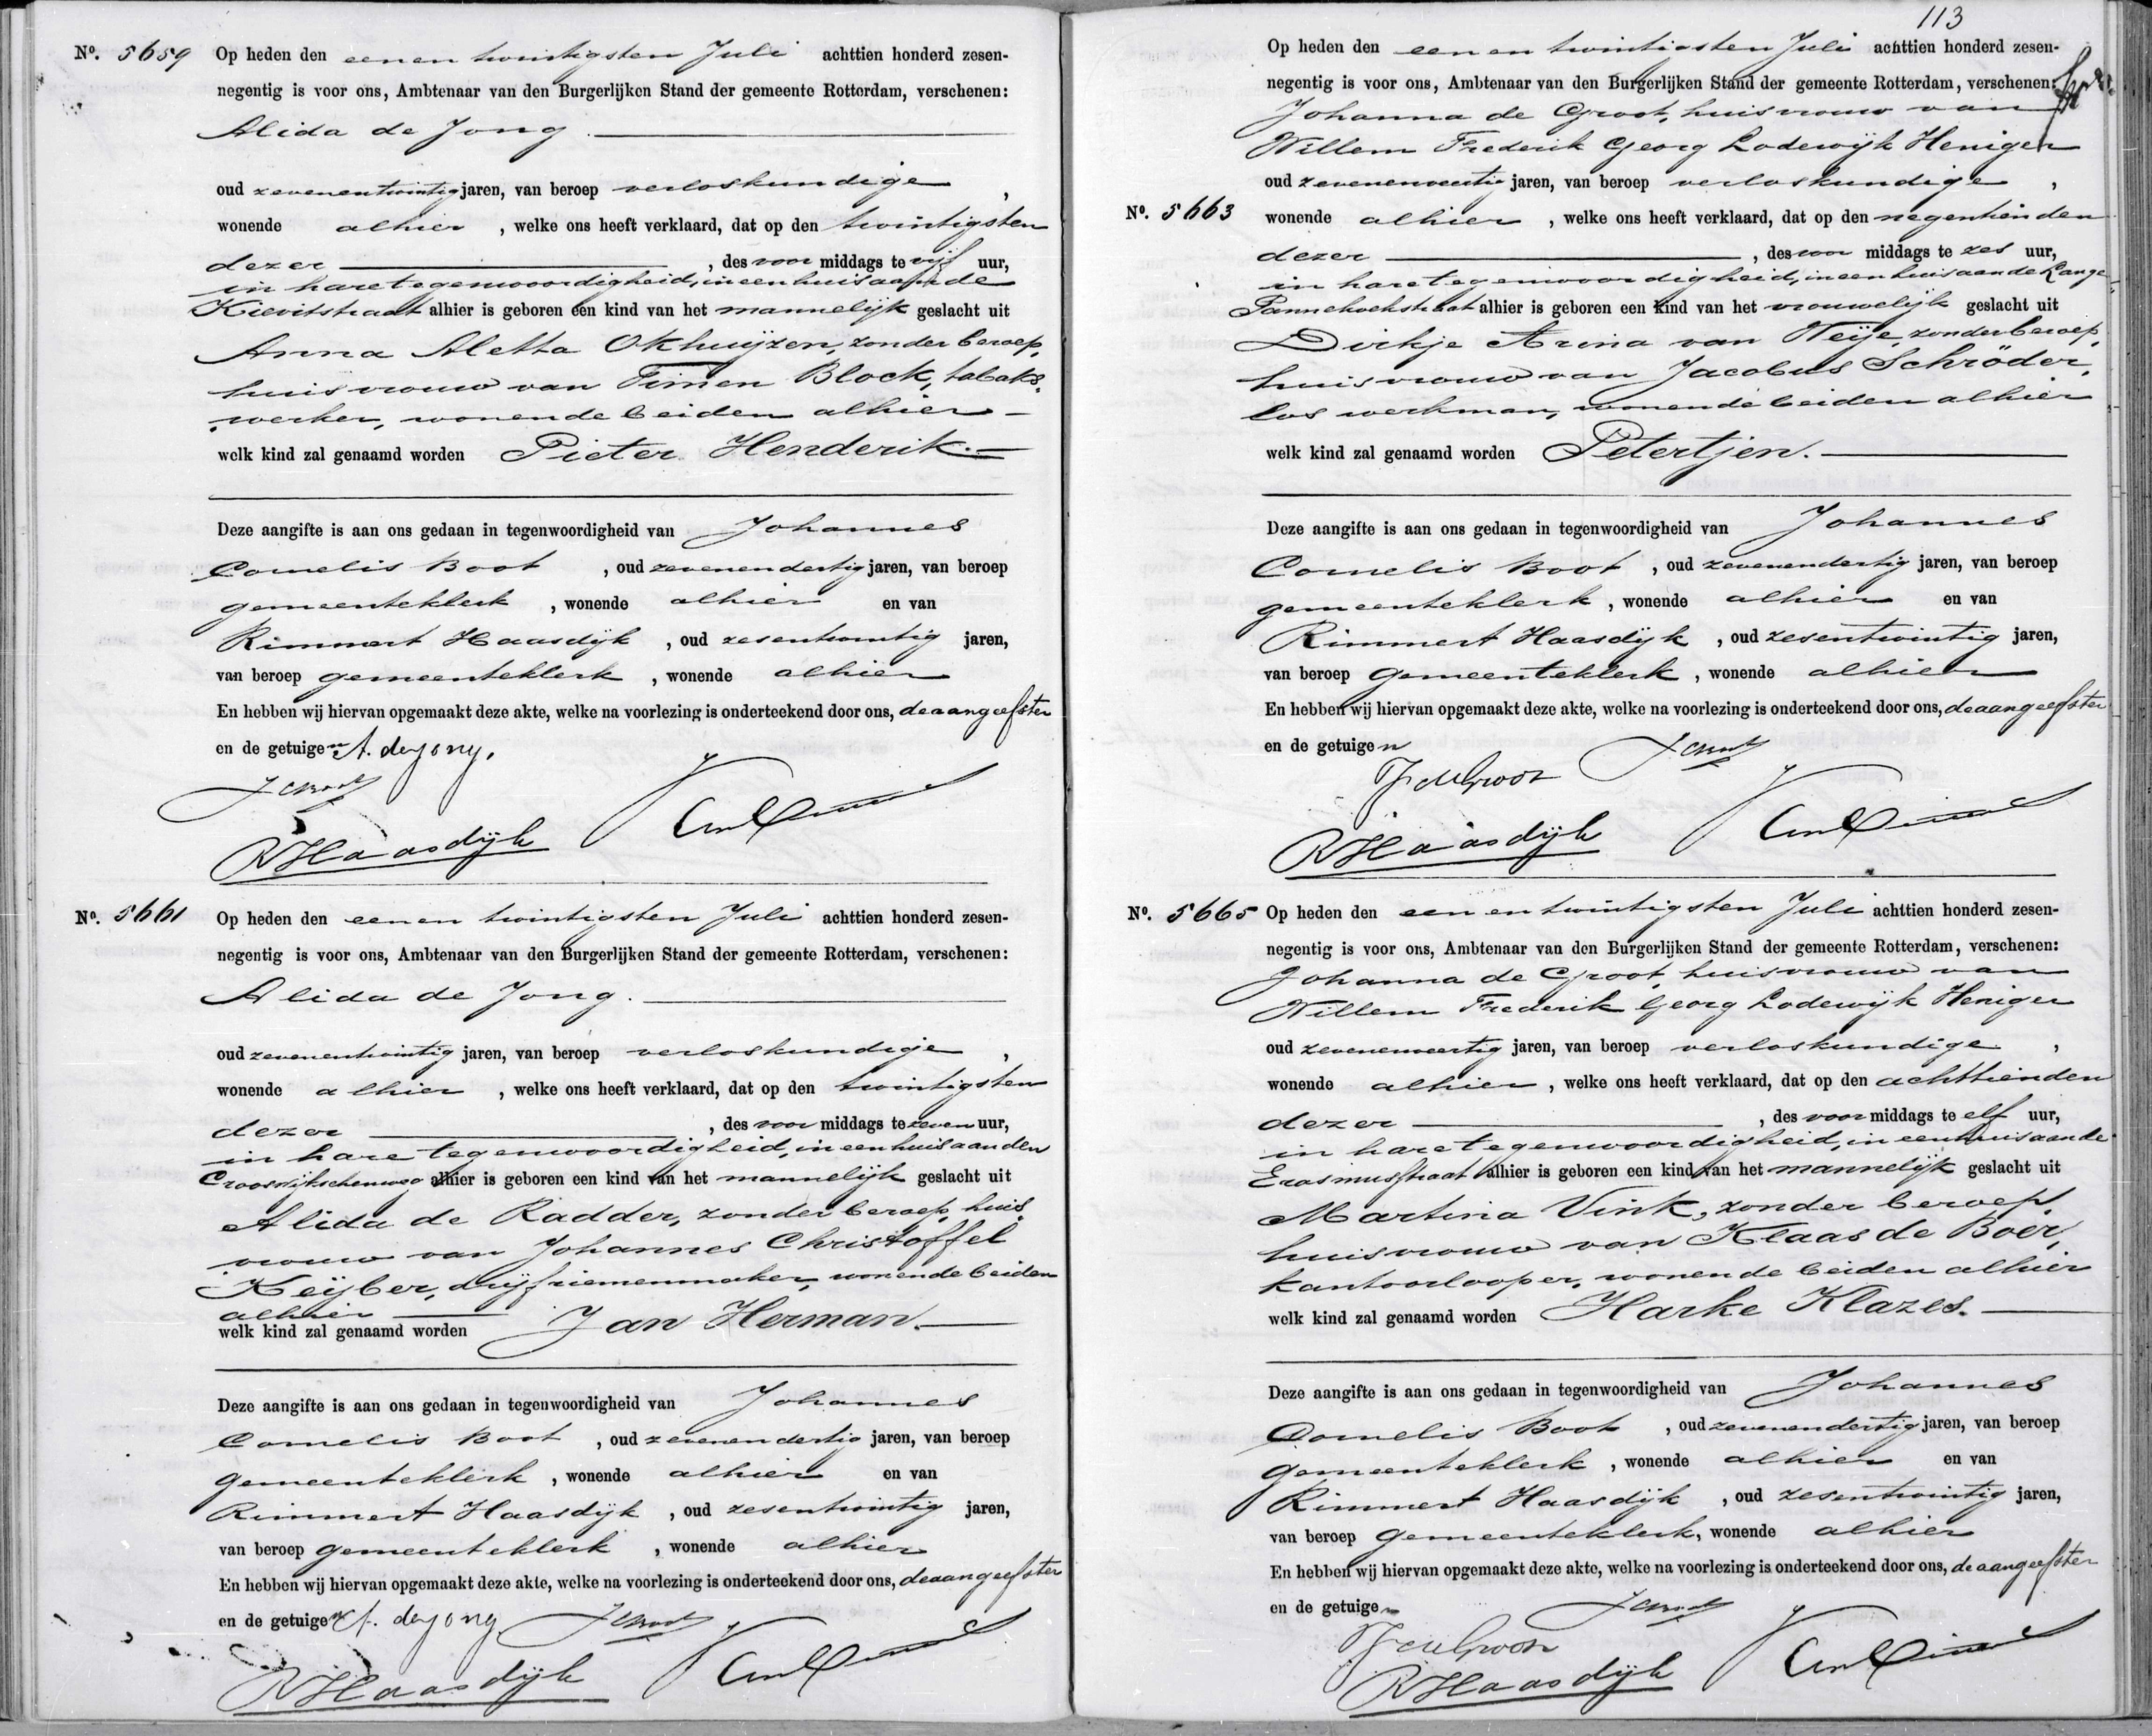 Nº. 5659 Op heden den eenentwintigsten Juli achttien honderd zesen-
negentig is voor ons, Ambtenaar van den Burgerlijken Stand der gemeente Rotterdam, verschenen:
Alida de Jong.
oud zevenentwintig jaren, van beroep verloskundige,
wonende alhier, welke ons heeft verklaard, dat op den twintigsten
dezer, des voor middags te vijf uur,
in hare tegenwoordigheid, in een huis aan de
Kievitstraat alhier is geboren een kind van het mannelijk geslacht uit
Anna Aletta Okhuijzen, zonder beroep,
huisvrouw van Timen Block, tabaks-
werker, wonende beiden alhier
welk kind zal genaamd worden Pieter Henderik.
Deze aangifte is aan ons gedaan in tegenwoordigheid van Johannes
Cornelis Boot, oud zevenendertig jaren, van beroep
gemeenteklerk, wonende alhier en van
Rimmert Haasdijk, oud zesentwintig jaren,
van beroep gemeenteklerk, wonende alhier
En hebben wij hiervan opgemaakt deze akte, welke na voorlezing is onderteekend door ons, de aangeefster
en de getuigen A. de Jong.
JCBoot
RHaasdijk
Nº. 5661 Op heden den eenentwintigsten Juli achttien honderd zesen-
negentig is voor ons, Ambtenaar van den Burgerlijken Stand der gemeente Rotterdam, verschenen:
Alida de Jong.
oud zevenentwintig jaren, van beroep verloskundige,
wonende alhier, welke ons heeft verklaard, dat op den twintigsten
dezer, des voor middags te zeven uur,
in hare tegenwoordigheid, in een huis aan den
Crooswijkschenweg alhier is geboren een kind van het mannelijk geslacht uit
Alida de Radder, zonder beroep, huis-
vrouw van Johannes Christoffel
Keijber, drijfriemenmaker, wonende beiden
alhier
welk kind zal genaamd worden Jan Herman.
Deze aangifte is aan ons gedaan in tegenwoordigheid van Johannes
Cornelis Boot, oud zevenendertig jaren, van beroep
gemeenteklerk, wonende alhier en van
Rimmert Haasdijk, oud zesentwintig jaren,
van beroep gemeenteklerk, wonende alhier
En hebben wij hiervan opgemaakt deze akte, welke na voorlezing is onderteekend door ons, de aangeefster
en de getuigen A. de Jong. JCBoot
RHaasdijk
113
Op heden den eenentwintigsten Juli achttien honderd zesen-
negentig is voor ons, Ambtenaar van den Burgerlijken Stand der gemeente Rotterdam, verschenen:
Johanna de Groot, huisvrouw van
Willem Frederik Georg Lodewijk Heniger
oud zevenenveertig jaren, van beroep verloskundige,
Nº. 5663 wonende alhier, welke ons heeft verklaard, dat op den negentienden
dezer, des voor middags te zes uur,
in hare tegenwoordigheid, in een huis aan de Lange
Pannekoekstraat alhier is geboren een kind van het vrouwelijk geslacht uit
Dirkje Arina van Weije, zonder beroep,
huisvrouw van Jacobus Schröder,
los werkman, wonende beiden alhier
welk kind zal genaamd worden Petertjen.
Deze aangifte is aan ons gedaan in tegenwoordigheid van Johannes
Cornelis Boot, oud zevenendertig jaren, van beroep
gemeenteklerk, wonende alhier en van
Rimmert Haasdijk, oud zesentwintig jaren,
van beroep gemeenteklerk, wonende alhier
En hebben wij hiervan opgemaakt deze akte, welke na voorlezing is onderteekend door ons, de aangeefster
en de getuigen JCBoot
J de Groot
RHaasdijk
Nº. 5665 Op heden den eenentwintigsten Juli achttien honderd zesen-
negentig is voor ons, Ambtenaar van den Burgerlijken Stand der gemeente Rotterdam, verschenen:
Johanna de Groot, huisvrouw van
Willem Frederik Georg Lodewijk Heniger
oud zevenenveertig jaren, van beroep verloskundige,
wonende alhier, welke ons heeft verklaard, dat op den achttienden
dezer, des voor middags te elf uur,
in hare tegenwoordigheid, in een huis aan de
Erasmusstraat alhier is geboren een kind van het mannelijk geslacht uit
Martina Vink, zonder beroep,
huisvrouw van Klaas de Boer,
kantoorlooper, wonende beiden alhier
welk kind zal genaamd worden Harke Klazes.
Deze aangifte is aan ons gedaan in tegenwoordigheid van Johannes
Cornelis Boot, oud zevenendertig jaren, van beroep
gemeenteklerk, wonende alhier en van
Rimmert Haasdijk, oud zesentwintig jaren,
van beroep gemeenteklerk, wonende alhier
En hebben wij hiervan opgemaakt deze akte, welke na voorlezing is onderteekend door ons, de aangeefster
en de getuigen JCBoot
J de Groot
RHaasdijk